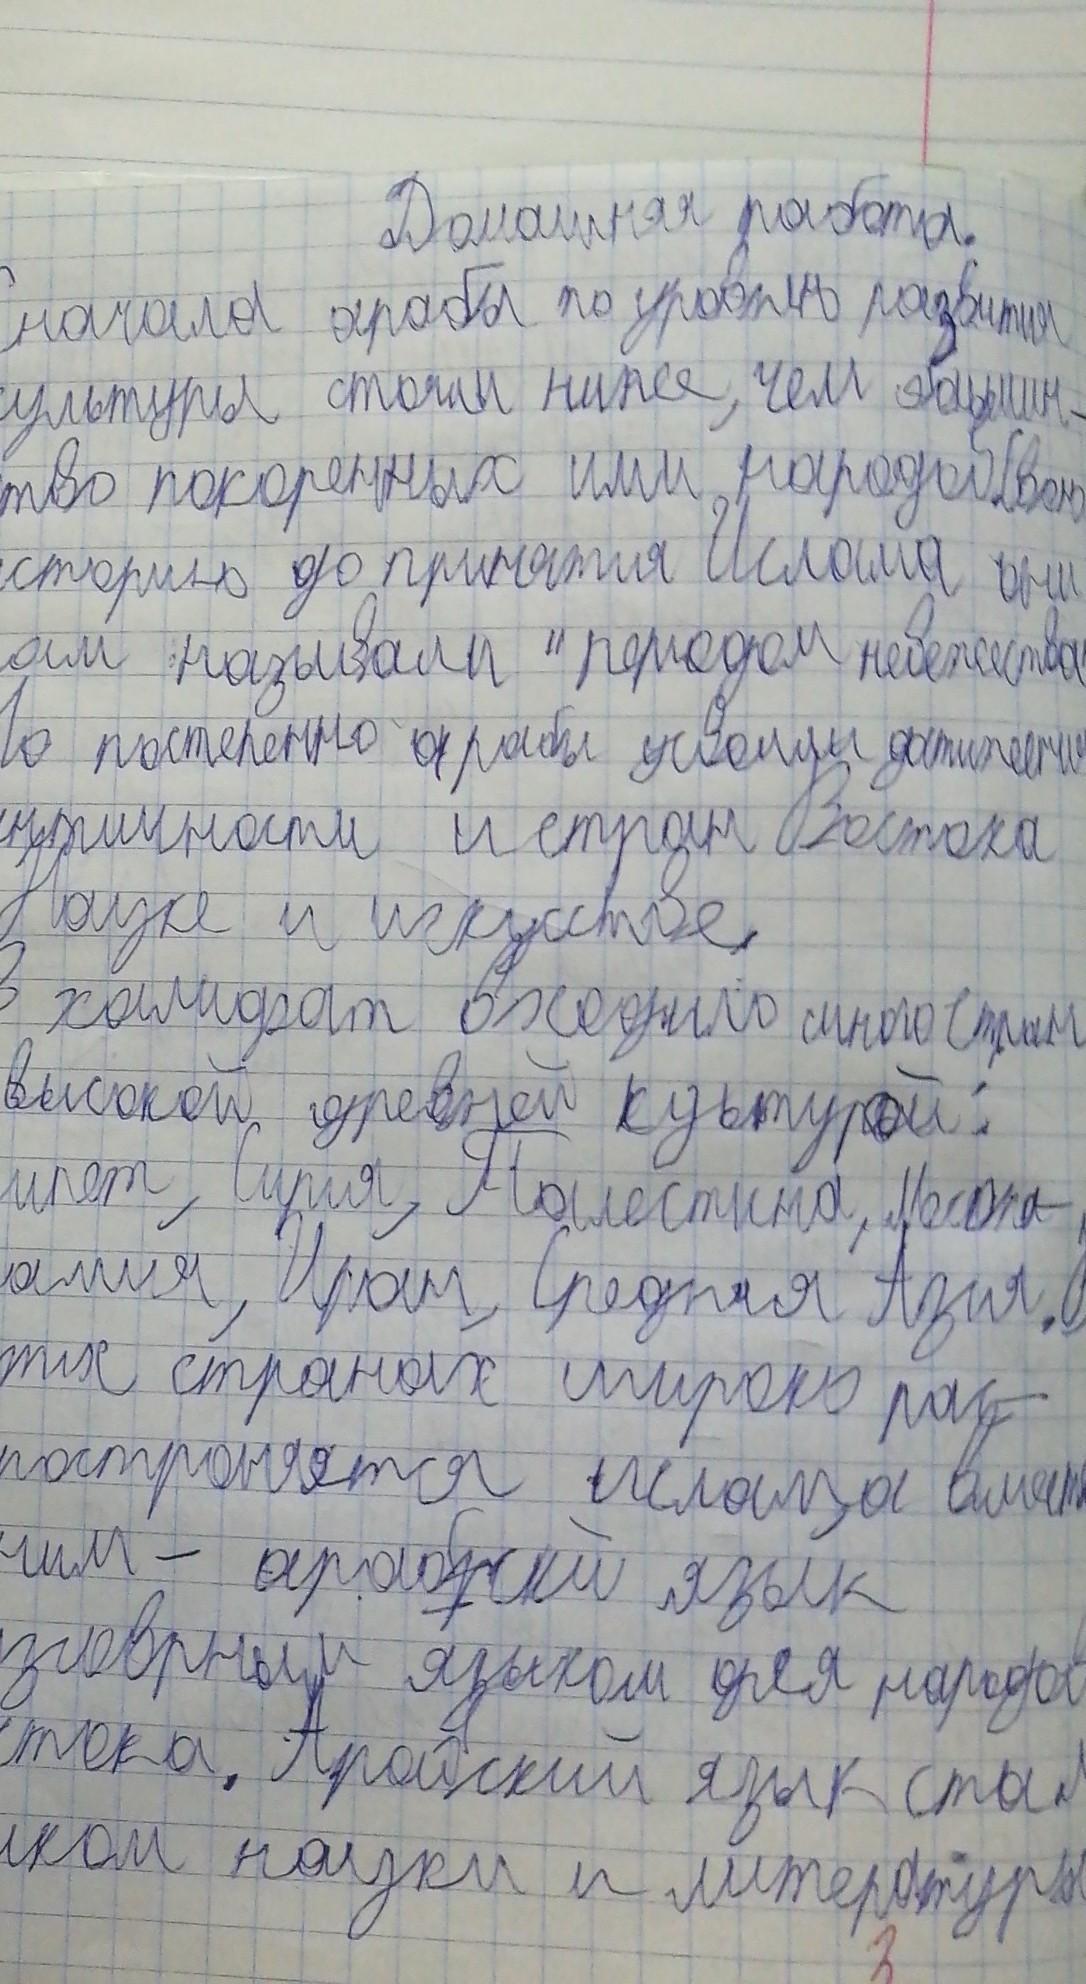 Домашняя работа.
Сначала арабы по уровню развития
культуры стояли ниже, чем
ство покоренных ими народов. Свою
историю до принятия Ислама они
сам называли "периодом невежества
Но постепенно арабы усвоили достижения
античности и стран Востока
Науке и искусстве.
В халифат входило много стран
высокой древней культурой:
ипет, Сирия, Палестина, Месопа-
амия, Иран, Средняя Азия. В
тих странах широко рас-
построняется ислам, а вместе
ним - арабский язык
зговрным языком для народов
стока. Арабский язык стал
ыком науки и литературы
3